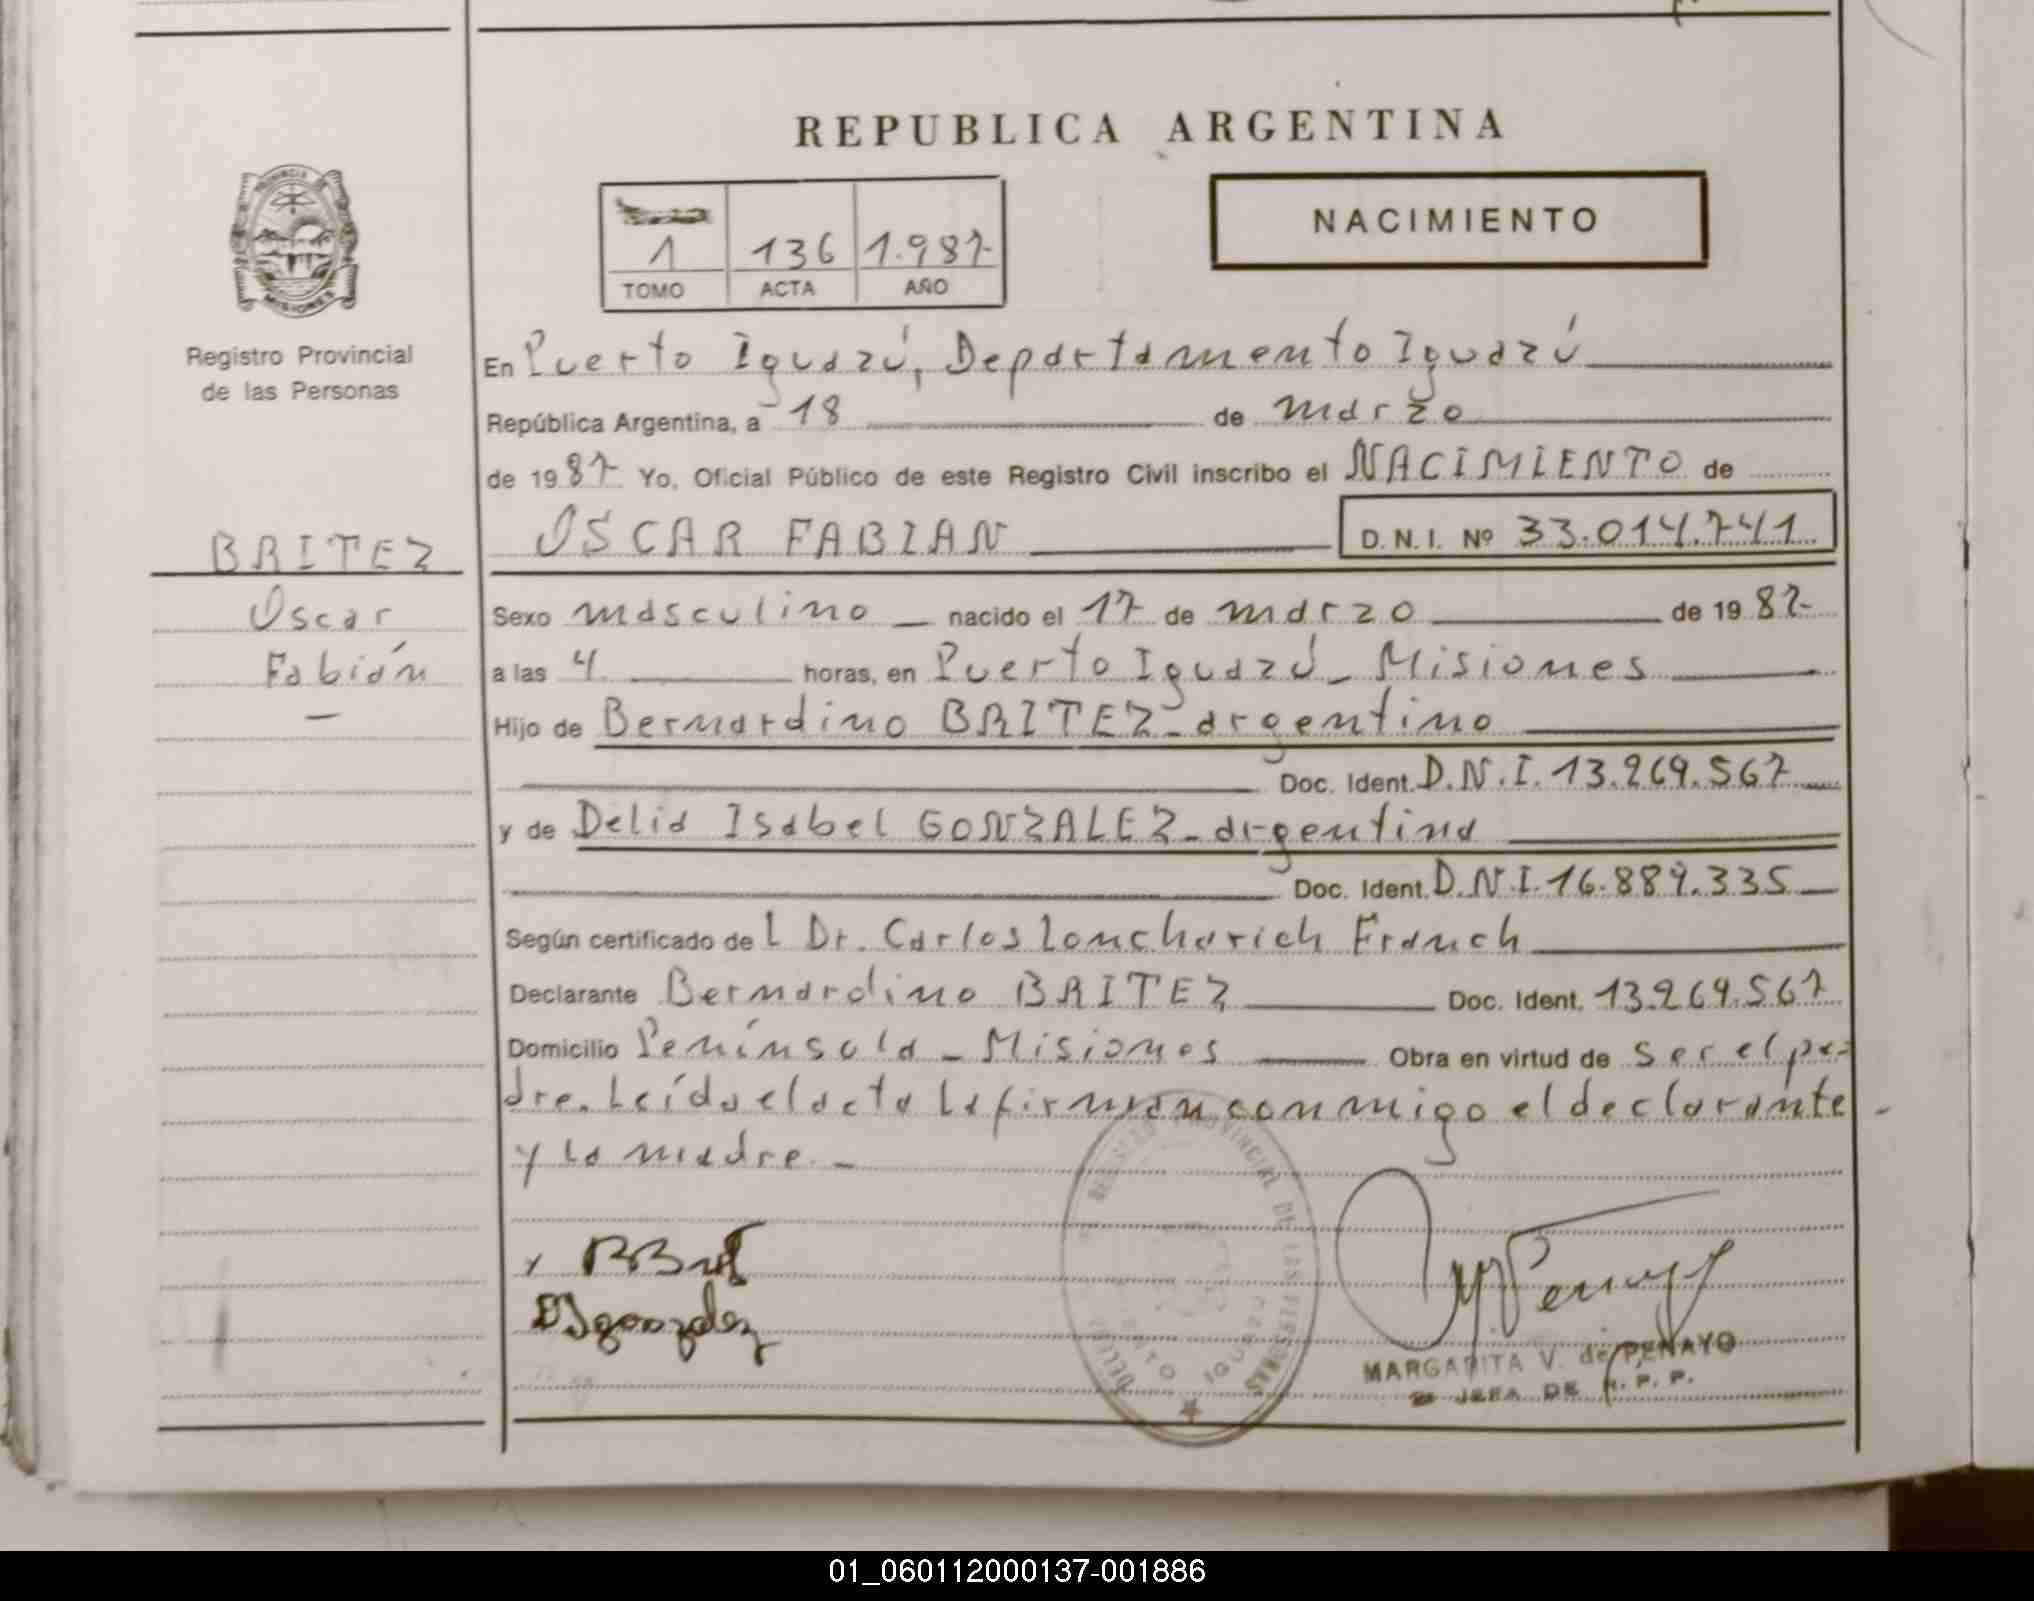 REPUBLICA ARGENTINA
NACIMIENTO
1 136 1.987
TOMO ACTA AÑO
PROVINCIA DE MISIONES
Registro Provincial
de las Personas
BRITEZ
Oscar
Fabián
—
En Puerto Iguazú, Departamento Iguazú
República Argentina, a 18 de marzo
de 1987 Yo, Oficial Público de este Registro Civil inscribo el NACIMIENTO de
OSCAR FABIAN D. N. I. Nº 33.014.741
Sexo masculino nacido el 17 de marzo de 1987
a las 4 horas, en Puerto Iguazú - Misiones
Hijo de Bernardino BRITEZ - argentino
Doc. Ident. D.N.I. 13.269.567
y de Delia Isabel GONZALEZ - argentina
Doc. Ident. D.N.I. 16.889.335
Según certificado del Dr. Carlos Loncharich Franch
Declarante Bernardino BRITEZ Doc. Ident. 13.269.567
Domicilio Península - Misiones Obra en virtud de ser el pa-
dre. Leída el acta la firman conmigo el declarante
y la madre. -
REGISTRO PROVINCIAL DE LAS PERSONAS
IGUAZU
DIgonzalez
MPenayo
MARGARITA V. de PENAYO
JEFA DE R. P. P.
01_060112000137-001886